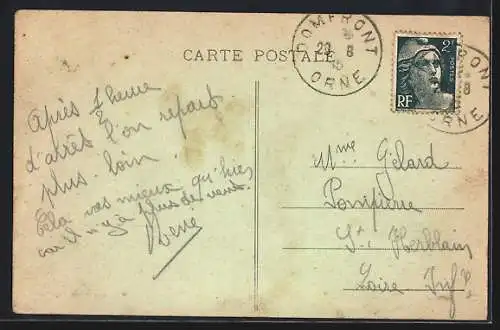 CARTE POSTALE
DOMFRONT
23 8
ORNE
2F
POSTES
RF
Après 1/2 heure
d'arrêt l'on repart
plus loin.
Cela vas mieux qu'hier
car il n'y a plus de vent.
Mme Gélard
St Herblain
Loire Infre